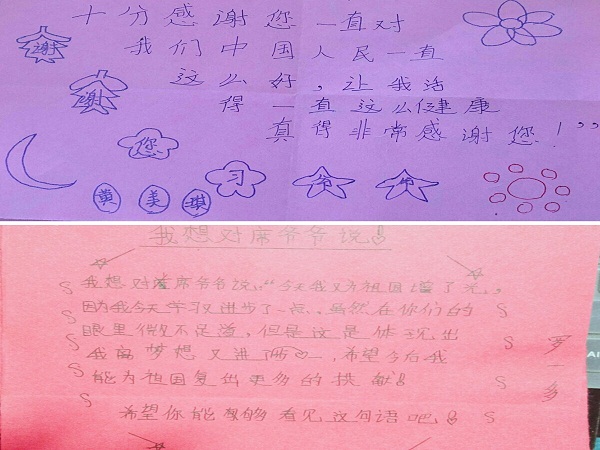 十分感谢您一直对
我们中国人民一直
这么好，让我活
得一直这么健康
真得非常感谢您！”
谢
谢
您
习
爷
爷
黄美琪
我想对席爷爷说！
我想对席爷爷说：“今天我又为祖国增了光，
因为我今天学习又进步了一点，虽然在你们的
眼里微不足道，但是这是体现出
我离梦想又进了两，希望今后我
能为祖国复出更多的拱献！
希望你能够看见这句语吧！
罗一多